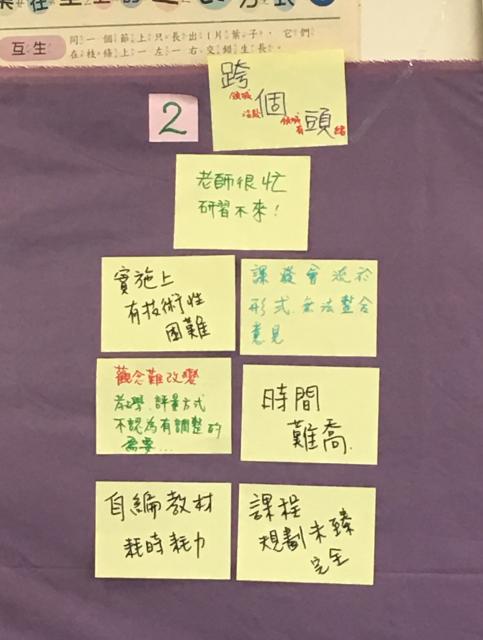 互生
同一個節上只長出1片葉子，它們
在枝條上一左一右交錯生長。
2
跨
領域
個
沒頭
領域
有
頭
緒
老師很忙
研習不來！
實施上
有技術性
困難
課發會流於
形式、無法整合
意見
觀念難改變
教學、評量方式
不認為有調整的
需要...
時間
難喬.
自編教材
耗時耗力
課程
規劃未臻
完全